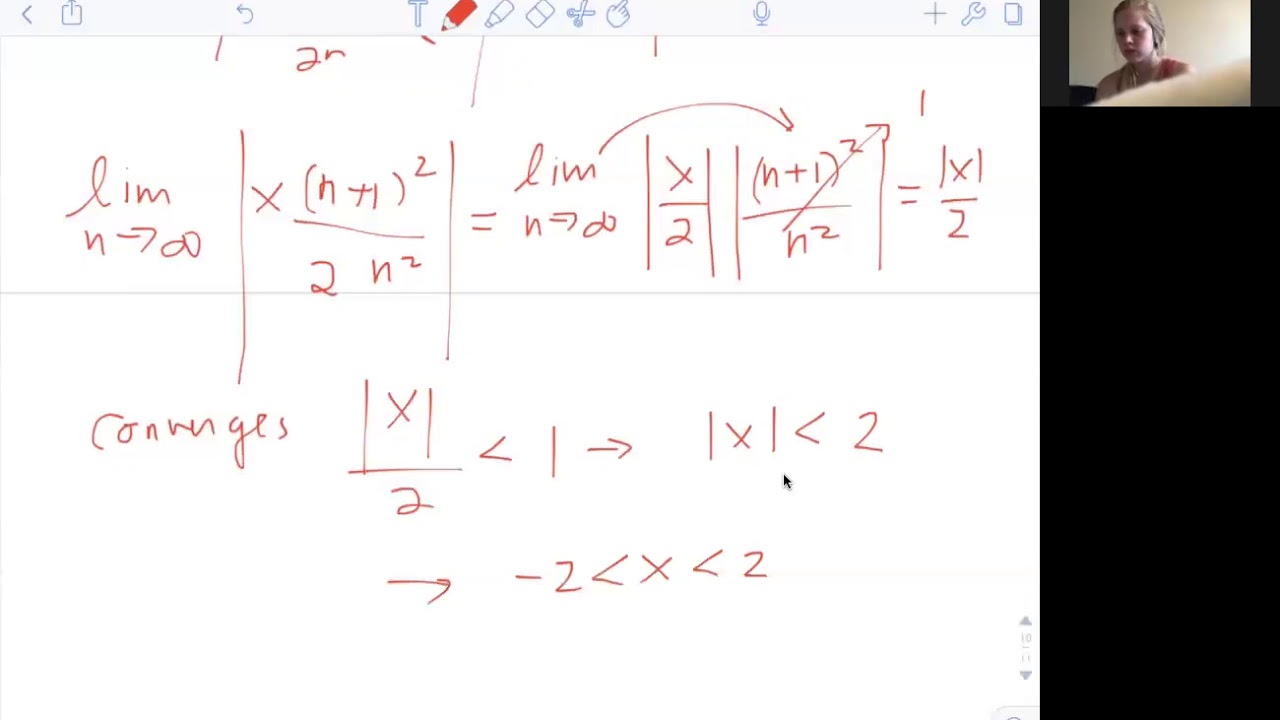 2n
1
lim n→∞ | x (n+1)² / 2 n² | = lim n→∞ | x / 2 | | (n+1)² / n² | = |x| / 2
converges |x| / 2 < 1 → |x| < 2
→ -2 < x < 2